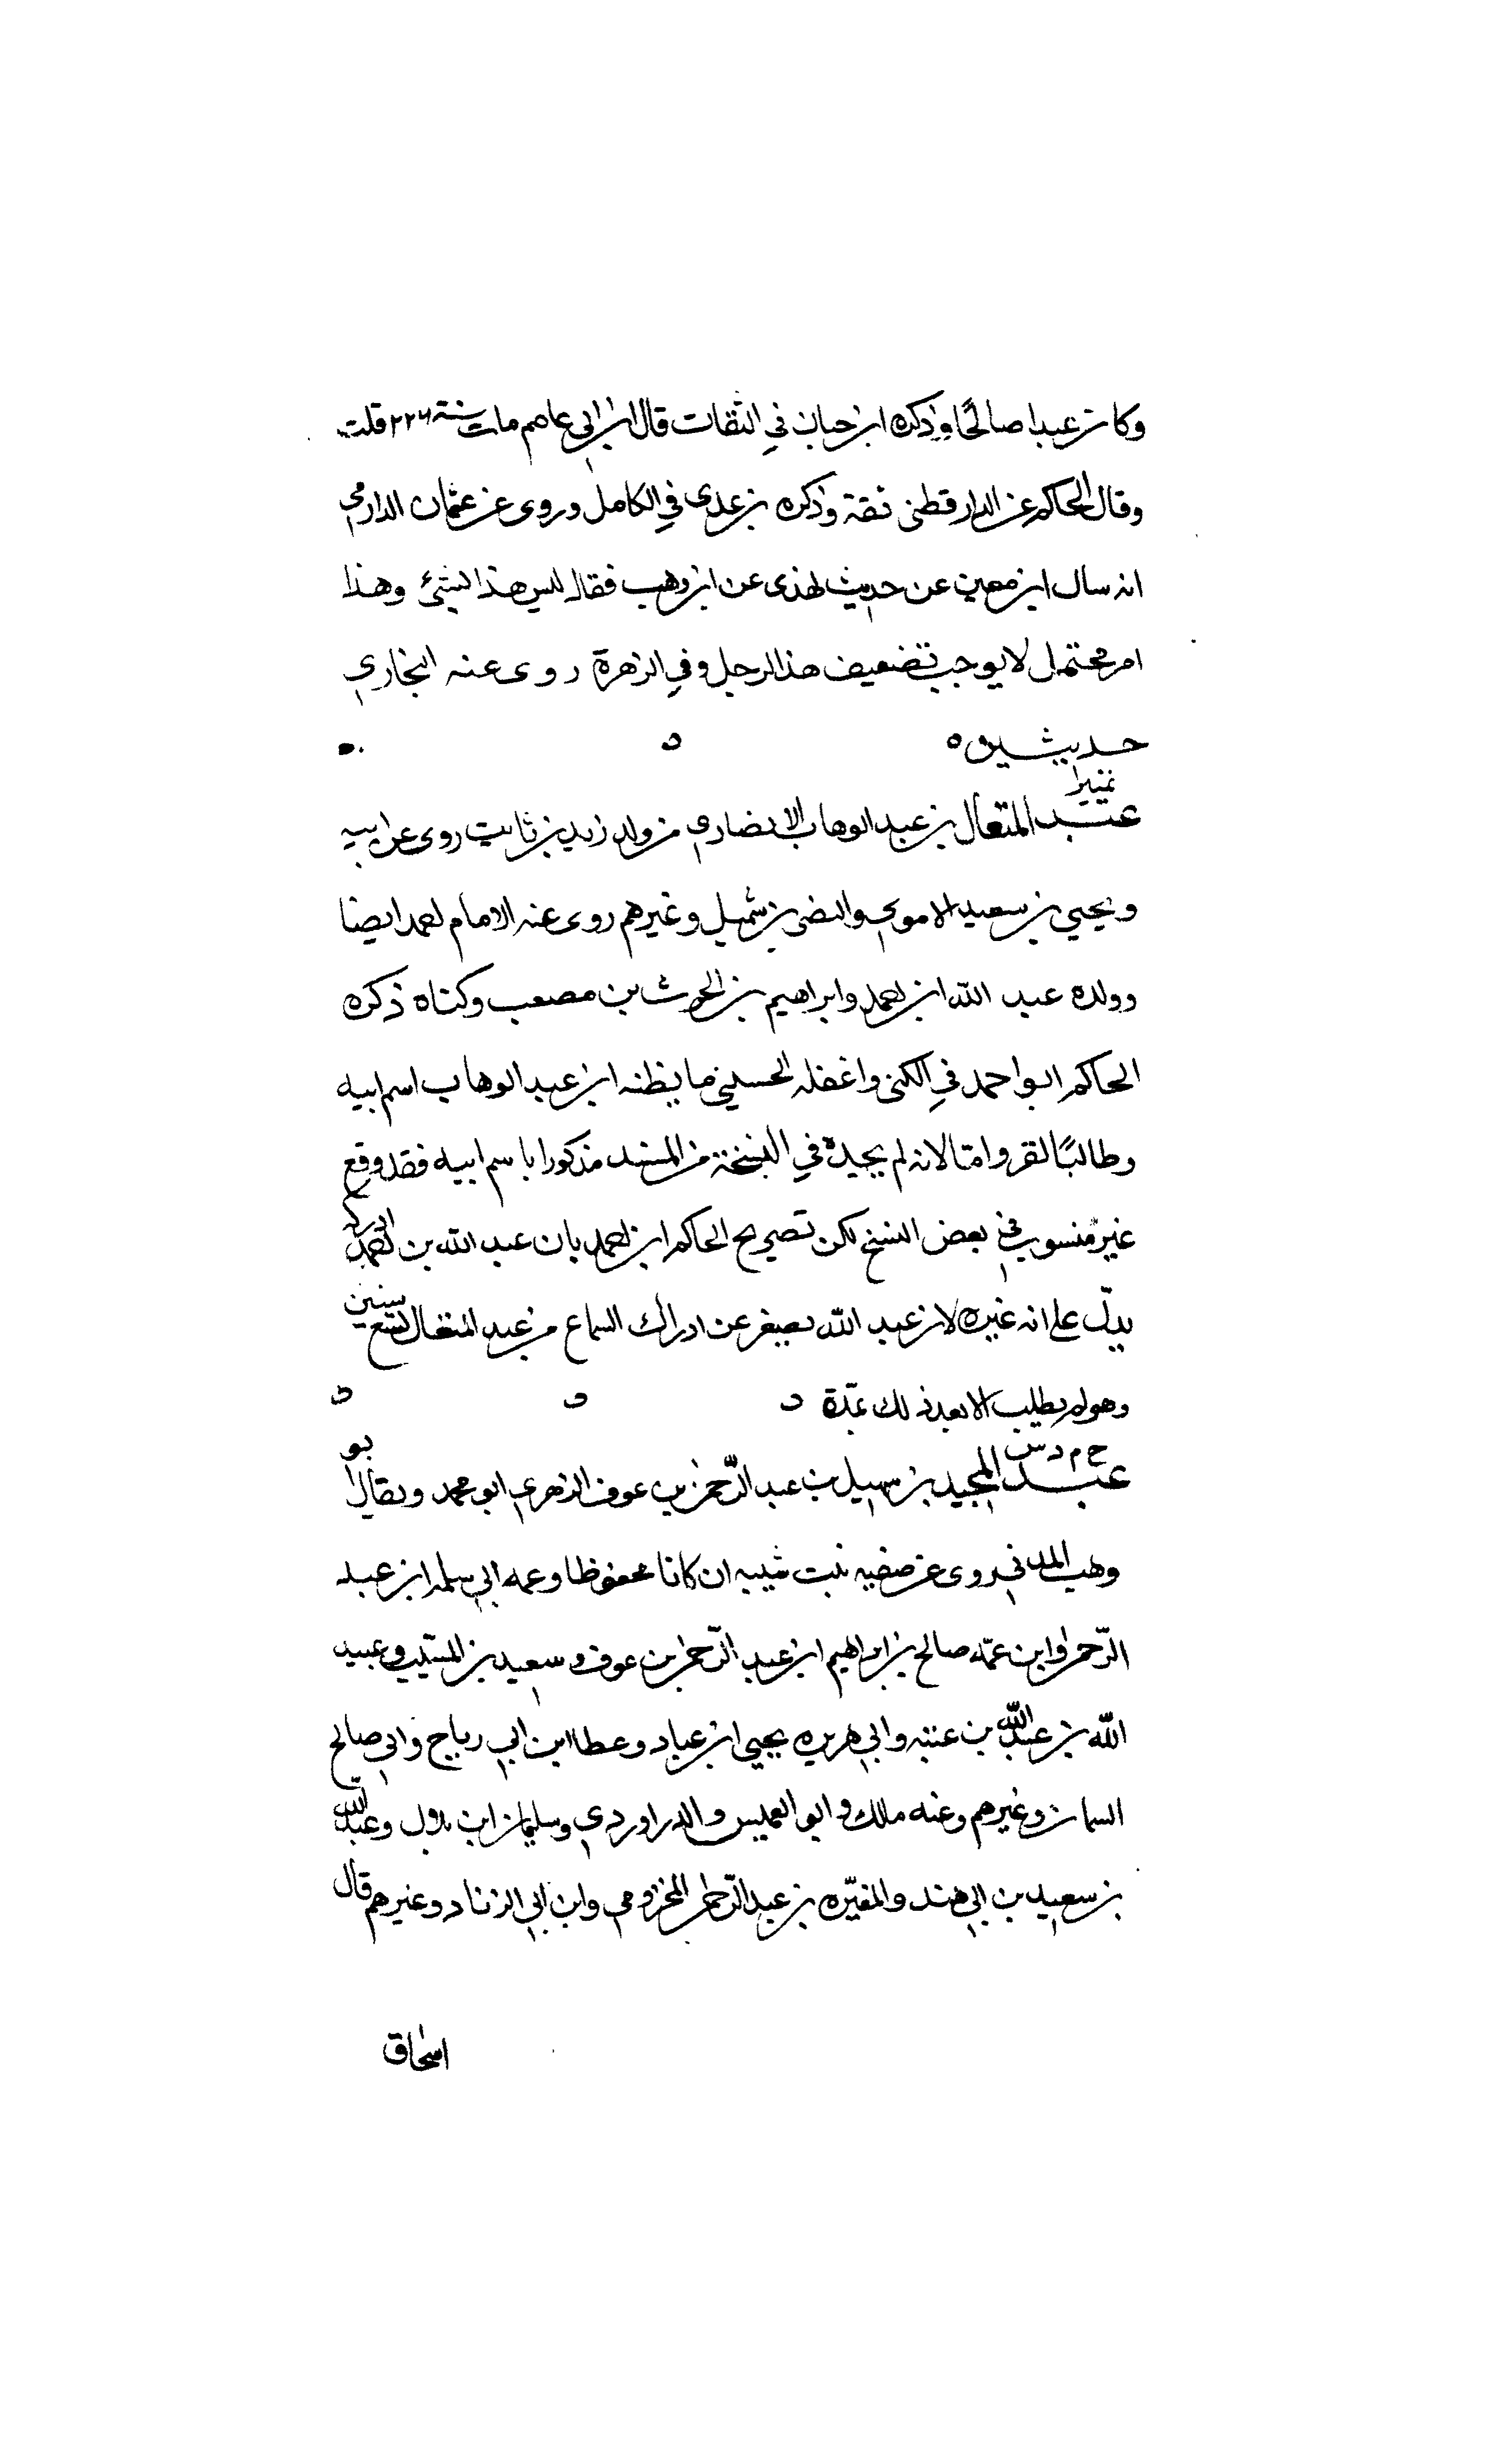 وكان عبدا صالحًا وذكره ابن حبان في الثقات قال ابن ابي عاصم مات سنة ٢٢٦ قلت
وقال الحاكم عن الدارقطنى ثقة وذكره بن عدى في الكامل وروى عن عثمان الدارمي
انه سال ابن معين عن حديث لهذى عن ابن وهب فقال ليس هذا بشئ وهذا
امر محتمل لا يوجب تضعيف هذا الرجل وفي الزهرة روى عنه البخاري
حديثين ه
تمييز
عبد المتعال بن عبد الوهاب الانصاري من ولد زيد بن ثابت روى عن ابيه
ويحيي بن سعيد الاموي والنضر بن شميل وغيرهم روى عنه الامام احمد ايضا
وولده عبد الله ابن احمد وابراهيم بن الحرث بن مصعب وكناه ذكره
الحاكم ابو احمد في الكنى واغفله الحسيني ما يظنه ابن عبد الوهاب اسم ابيه
وطالبًا لقر واما لانه لم يجده في النسخة من المسند مذكورا باسم ابيه فقد وقع
غير منسوب في بعض النسخ لكن تصريح الحاكم ابن احمد بان عبد الله بن احمد ادركه
يدلّ على انه غيره لان عبد الله يصغر عن ادراك السماع من عبد المتعال لتسع سنين
وهو لم يطلب الا بعد ذلك بمدّة
خ م د س
عبد المجيد بن سهيل بن عبد الرّحمن بن عوف الزهري ابو محمد ويقال ابو
وهب المدني روى عن صفيه بنت شيبه ان كانا محفوظا وعمه ابي سلمه ابن عبد
الرّحمن وابن عمّه صالح بن ابراهيم ابن عبد الرّحمن بن عوف وسعيد بن المسيّب وعبيد
الله بن عبد الله بن عتبه وابي هريره يحيي ابن عباد وعطا ابن ابي رباح وابي صالح
السمان وغيرهم وعنه مالك وابو العميس والدراوردي وسليمان ابن بلال وعبد الله
بن سعيد بن ابي هند والمغيّره بن عبد الرّحمن المخزومي وابن ابي الزناد وغيرهم قال
اسحاق